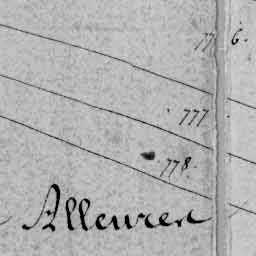 776.
777
778.
Alleuren